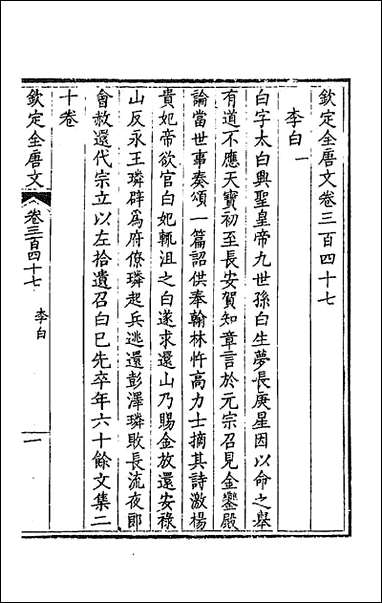 欽定全唐文卷三百四十七
李白一
白字太白興聖皇帝九世孫白生夢長庚星因以命之舉
有道不應天寶初至長安賀知章言於元宗召見金鑾殿
論當世事奏頌一篇詔供奉翰林忤高力士摘其詩激楊
貴妃帝欲官白妃輒沮之白遂求還山乃賜金放還安祿
山反永王璘辟為府僚璘起兵逃還彭澤璘敗長流夜郎
會赦還代宗立以左拾遺召白已先卒年六十餘文集二
十卷
欽定全唐文
卷三百四十七
李白
一